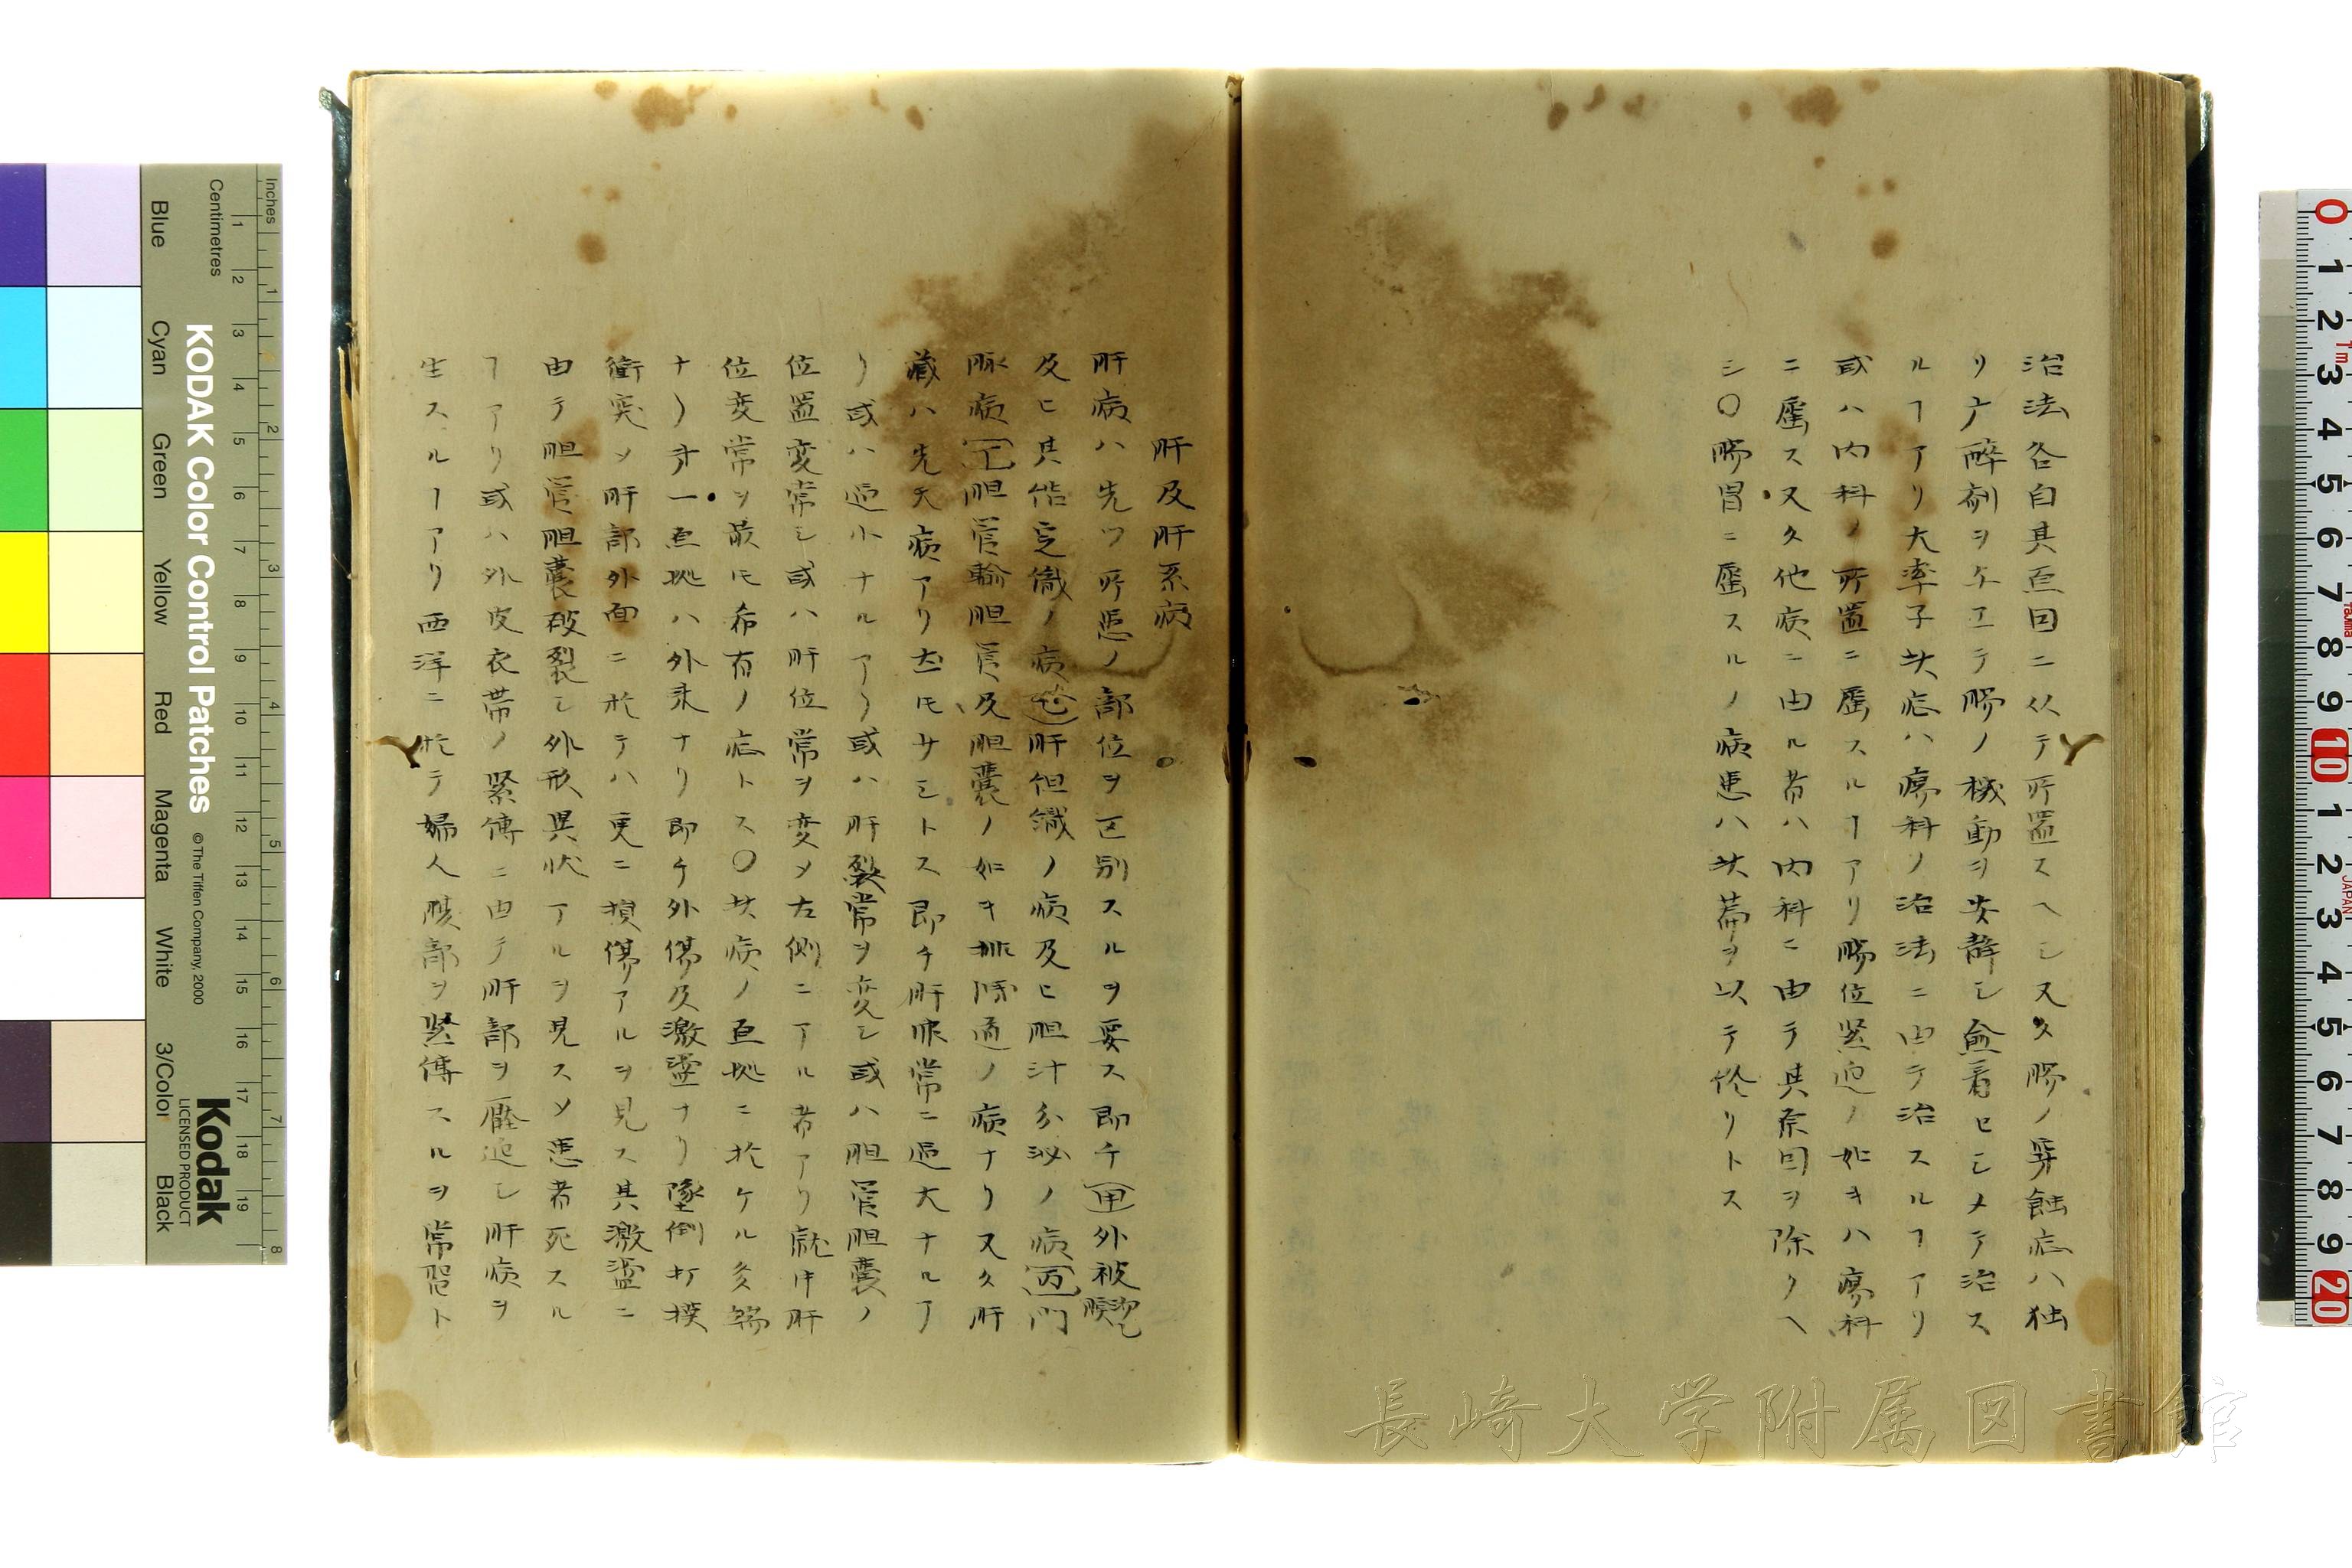 治法各自其原因ニ从テ所置スヘシ又久膓ノ穿蝕症ハ独
リ麻酔剤ヲ与エテ膓ノ機動ヲ安静シ愈着セシメテ治ス
ルヿアリ大率子此症ハ瘍科ノ治法ニ由テ治スルヿアリ
或ハ内科ノ所置ニ属スルヿアリ膓位緊迫ノ如キハ瘍科
ニ属ス又久他病ニ由ル者ハ内科ニ由テ其原因ヲ除クヘ
シ〇膓胃ニ属スルノ病患ハ此篇ヲ以テ終リトス
肝及肝系病
肝病ハ先ツ所患ノ部位ヲ区別スルヲ要ス即チ甲外被膜
及ヒ其ノ病乙肝組織ノ病及ヒ胆汁分泌ノ病丙門
脉病丁胆管輸胆管及胆嚢ノ如キ排泄道ノ病ナリ又久肝
蔵ハ先天病アリ尤モサシトス即チ肝非常ニ過大ナルヿ
リ或ハ過小ナルアリ或ハ肝裂常ヲ変シ或ハ胆管胆嚢ノ
位置変常シ或ハ肝位常ヲ変メ左側ニアル者アリ就中肝
位変常ヲ最モ希有ノ症トス〇此病ノ原
ナリ第一原ハ外来ナリ即チ外傷及激盪ナリ墜倒打撲
衝突メ肝部外面ニ於テハ更ニ損傷アルヲ見ス其激盪ニ
由テ胆管胆嚢破裂シ外形異状アルヲ見スメ患者死スル
ヿアリ或ハ外皮衣帯ノ緊傅ニ由テ肝部ヲ壓迫シ肝病ヲ
生スルヿアリ西洋ニ於テ婦人腰部ヲ緊傅スルヲ常習ト
Inches
Centimetres
KODAK Color Control Patches
©The Tiffen Company, 2000
Kodak
LICENSED PRODUCT
Blue Cyan Green Yellow Red Magenta White 3/Color Black
長崎大学附属図書館